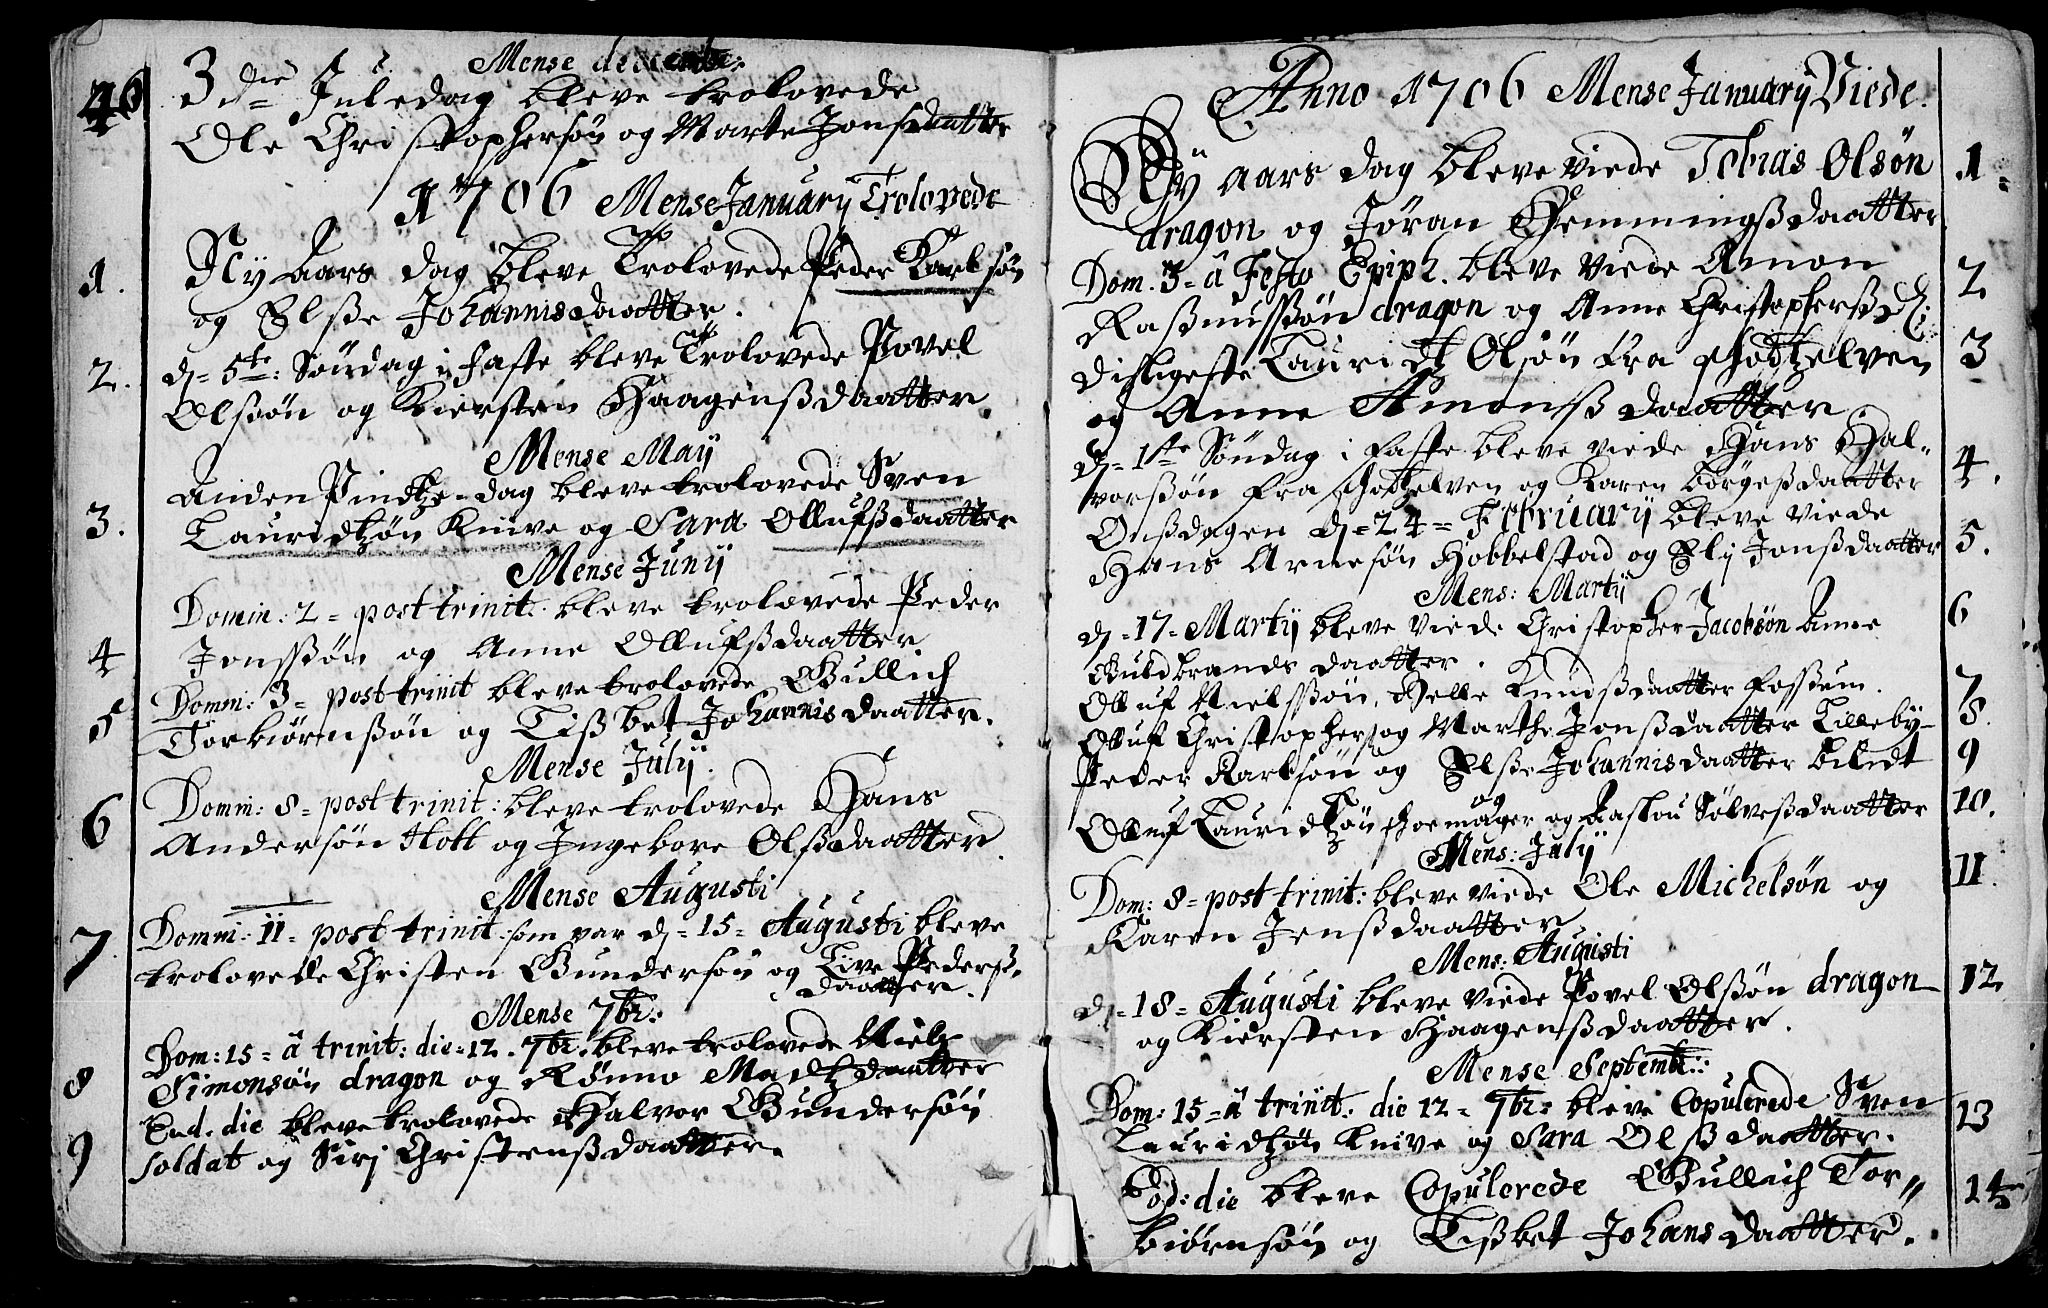 Mense decembr:
46
3 die Juledag bleve trolovede
Ole Christophersøn og Marte Jonsdaatter
1706 Mense Januarij Trolovede
1. Ny Aars dag bleve Trolovede Peder Karlsøn
og Elsße Johannisdaatter.
2. dj = 5te: Søndag i faste bleve Trolovede Povel
Olssøn og Kiersten Haagenßdaatter.
Mense Maij
Anden Pindtze-dag bleve trolovede Sven
3. Lauridtzøn Knive og Sara Ollufßdaatter
Mense Junij
Domin: 2 = post trinit: bleve trolovede Peder
4 Jonssøn og Anne Ollufßdaatter.
Domin: 3 = post trinit bleve trolovede Gullich
5 Torbiørnssøn og Lißbet Johannisdaatter.
Mense Julij.
Domin: 8 = post trinit: bleve trolovede Hans
6 Andersøn Hott og Ingebore Olßdaatter.
Mense Augusti
Domin: 11 = post trinit: som var dj = 15 = Augusti bleve
7. trolovede Christen Gundersøn og Live Pederß-
daatter.
Mense 7br:
Dom: 15 = â trinit: die = 12. 7br. bleve trolovede Nielß
8 Simonsøn dragon og Rønno Madtzdaatter
Eod. die bleve trolovede Halvor Gundersøn
9 soldat og Sirj Christenßdaatter.
Anno 1706 Mense Januarij Viede.
Ny aars dag bleve viede Tobias Olsøn 1 =
dragon og Jøran Hemmingßdaatter
Dom. 3 = â Festo Epiph. bleve viede Amon 2
Raßmussøn dragon og Anne Christophersß D:
disligeste Lauridtz Olsøn fra Hottzelven 3
og Anne Amonsß daatter.
dj = 1ste Søndag i Faste bleve viede Hans Hal-
vorssøn fra Hottzelven og Karen Børgeßdaatter 4.
Onßdagen dj = 24 = Februarij bleve viede
Hans Arnesøn Hobbelstad og Elj Jonßdaatter 5.
Mens: Martij
dj = 17 = Martij bleve viede Christopher Jacobsøn Anne 6
Guldbrands daatter.
Olluf Nielssøn, Helle Knudßdaatter Fossum. 7
Olluf Christophers og Marthe Jonßdaatter Lilleby- 8.
Peder Karlsøn og Elße Johannisdaatter bildt 9
og
Olluf Lauridtzøn skoemager og Aaslou Sølveßdaatter 10.
Mens: Julij
Dom: 8 = post trinit: bleve viede Ole Michelsøn og 11.
Karen Jenßdaatter
Mens: Augusti
dj = 18 = Augusti bleve viede Povel Olssøn dragon 12
og Kiersten Haagenßdaatter.
Mense Septemb::
Dom: 15 = â trinit: die 12 = 7br: bleve Copulerede Sven 13
Lauridtzøn Knive og Sara Olßdaatter.
Eod: die bleve Copulerede Gullich Tor= 14
biørnsøn og Lißbet Johansdaatter.